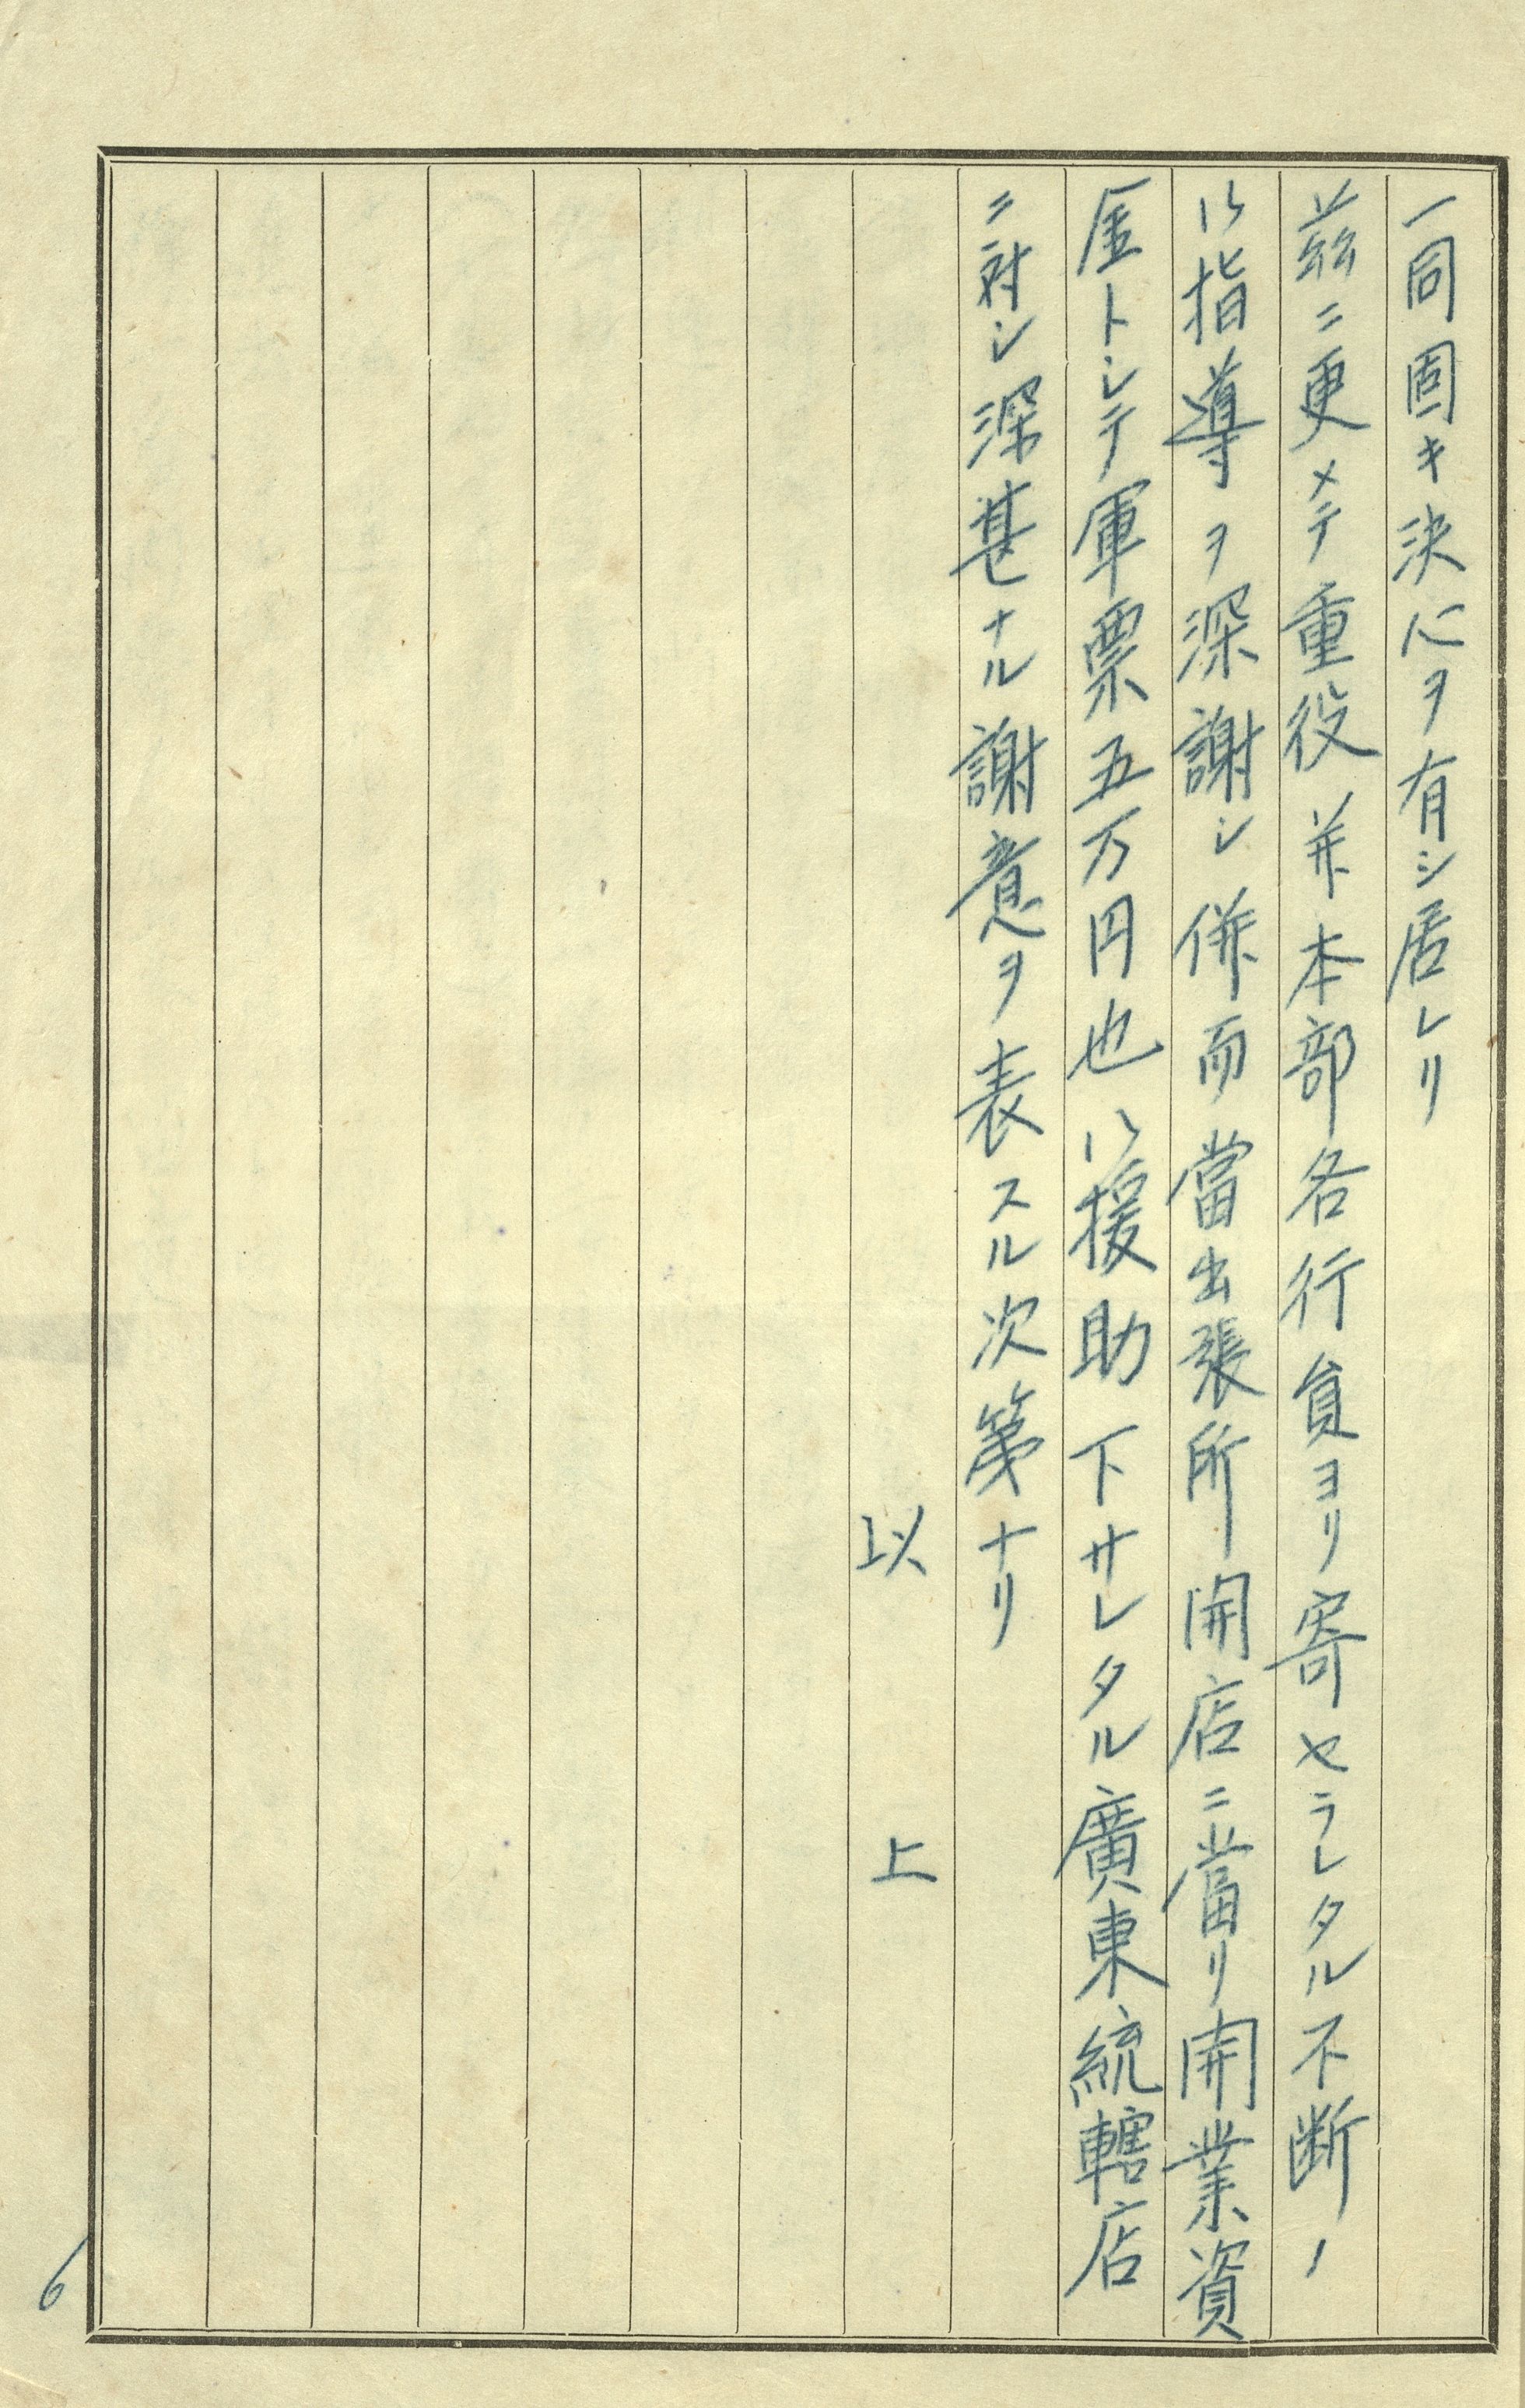 一同固キ決心ヲ有シ居レリ
茲ニ更メテ重役並本部各行員ヨリ寄セラレタル不断ノ
御指導ヲ深謝シ併而當出張所開店ニ當リ開業資
金トシテ軍票五万円也御援助下サレタル廣東統轄店
ニ対シ深甚ナル謝意ヲ表スル次第ナリ
以上
6